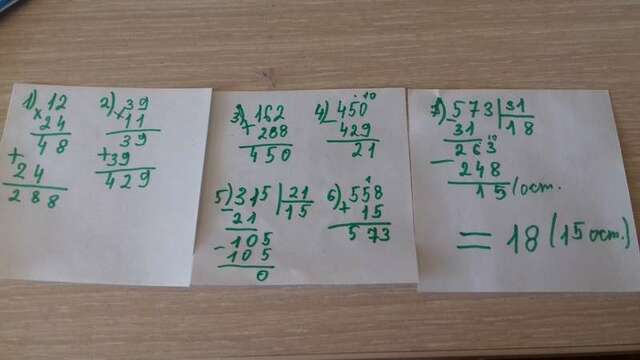 1) 12
× 24
48
+ 24
288
2) 39
× 11
39
+ 39
429
3) 162
+ 288
450
4) 450 10
- 429
21
5) 315 | 21
- 21 | 15
105
- 105
0
6) 558 1
+ 15
573
7) 573 | 31
- 31 | 18
263 10
- 248
15 (ост.
= 18 (15 ост.)